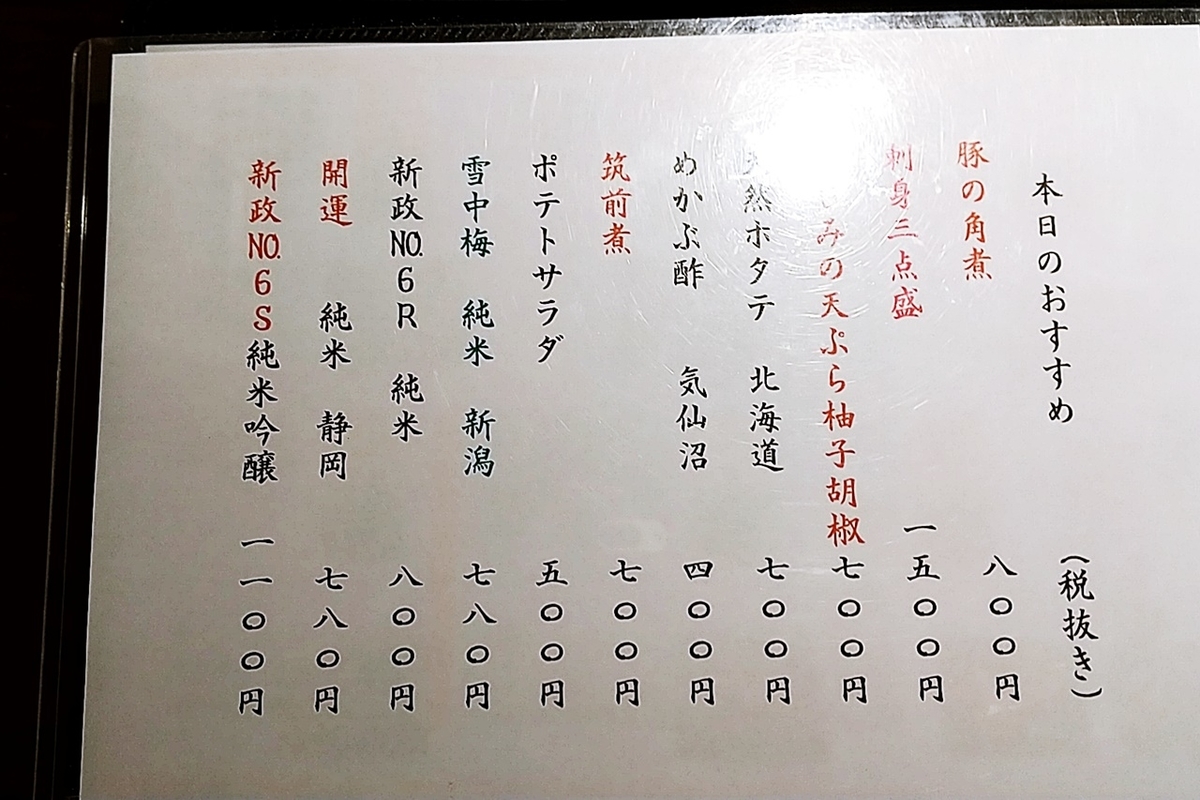 本日のおすすめ (税抜き)
豚の角煮 八〇〇円
刺身三点盛 一五〇〇円
みの天ぷら柚子胡椒 七〇〇円
天然ホタテ 北海道 七〇〇円
めかぶ酢 気仙沼 四〇〇円
筑前煮 七〇〇円
ポテトサラダ 五〇〇円
雪中梅 純米 新潟 七八〇円
新政NO.6R 純米 八〇〇円
開運 純米 静岡 七八〇円
新政NO.6S純米吟醸 一一〇〇円